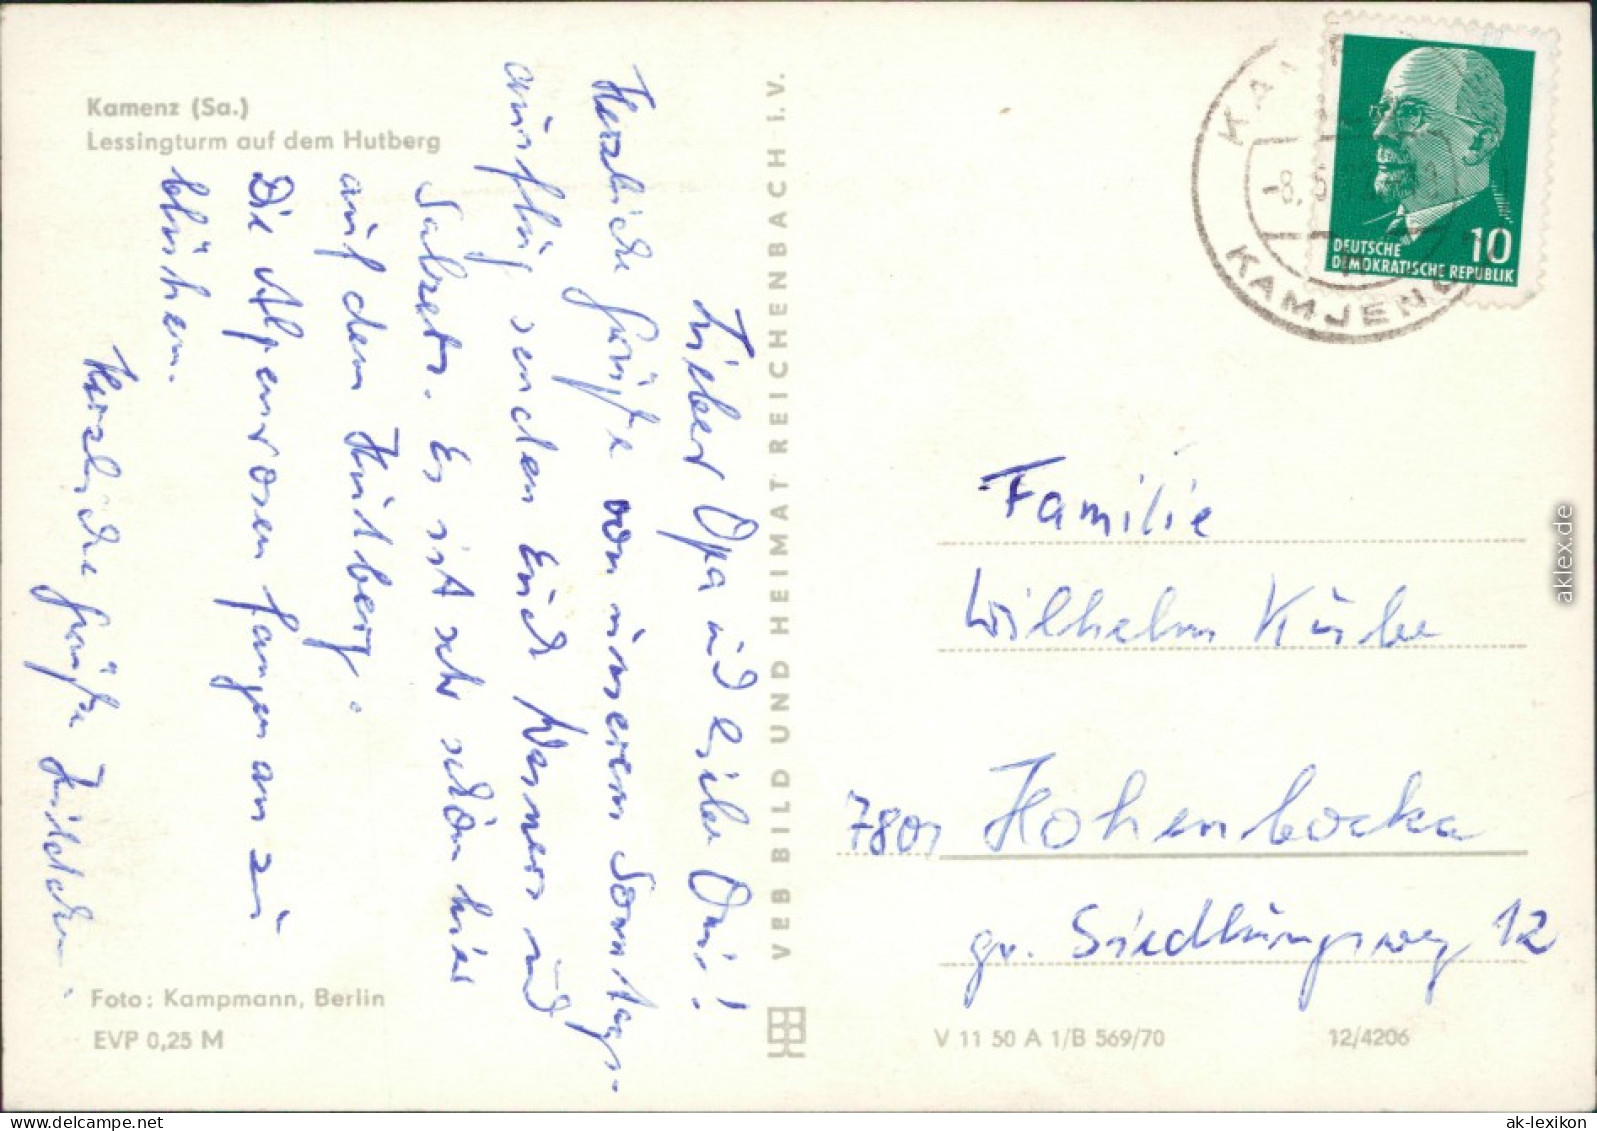 Kamenz (Sa.)
Lessingturm auf dem Hutberg
Lieber Opa und liebe Omi!
Herzliche Grüße von unserem Sonntags-
ausflug senden Euch Werners und
Es ist sehr schön hier
auf dem Hutberg.
Die Alpenrosen fangen an zu
blühen.
Herzliche Grüße
Foto: Kampmann, Berlin
EVP 0,25 M
VEB BILD UND HEIMAT REICHENBACH i. V.
KAMJEN
DEUTSCHE
DEMOKRATISCHE REPUBLIK
10
Familie
Wilhelm
7801 Hohenbocka
gr. Siedlungsweg 12
V 11 50 A 1/B 569/70
12/4206
aklex.de
www.delcampe.net
ak-lexikon